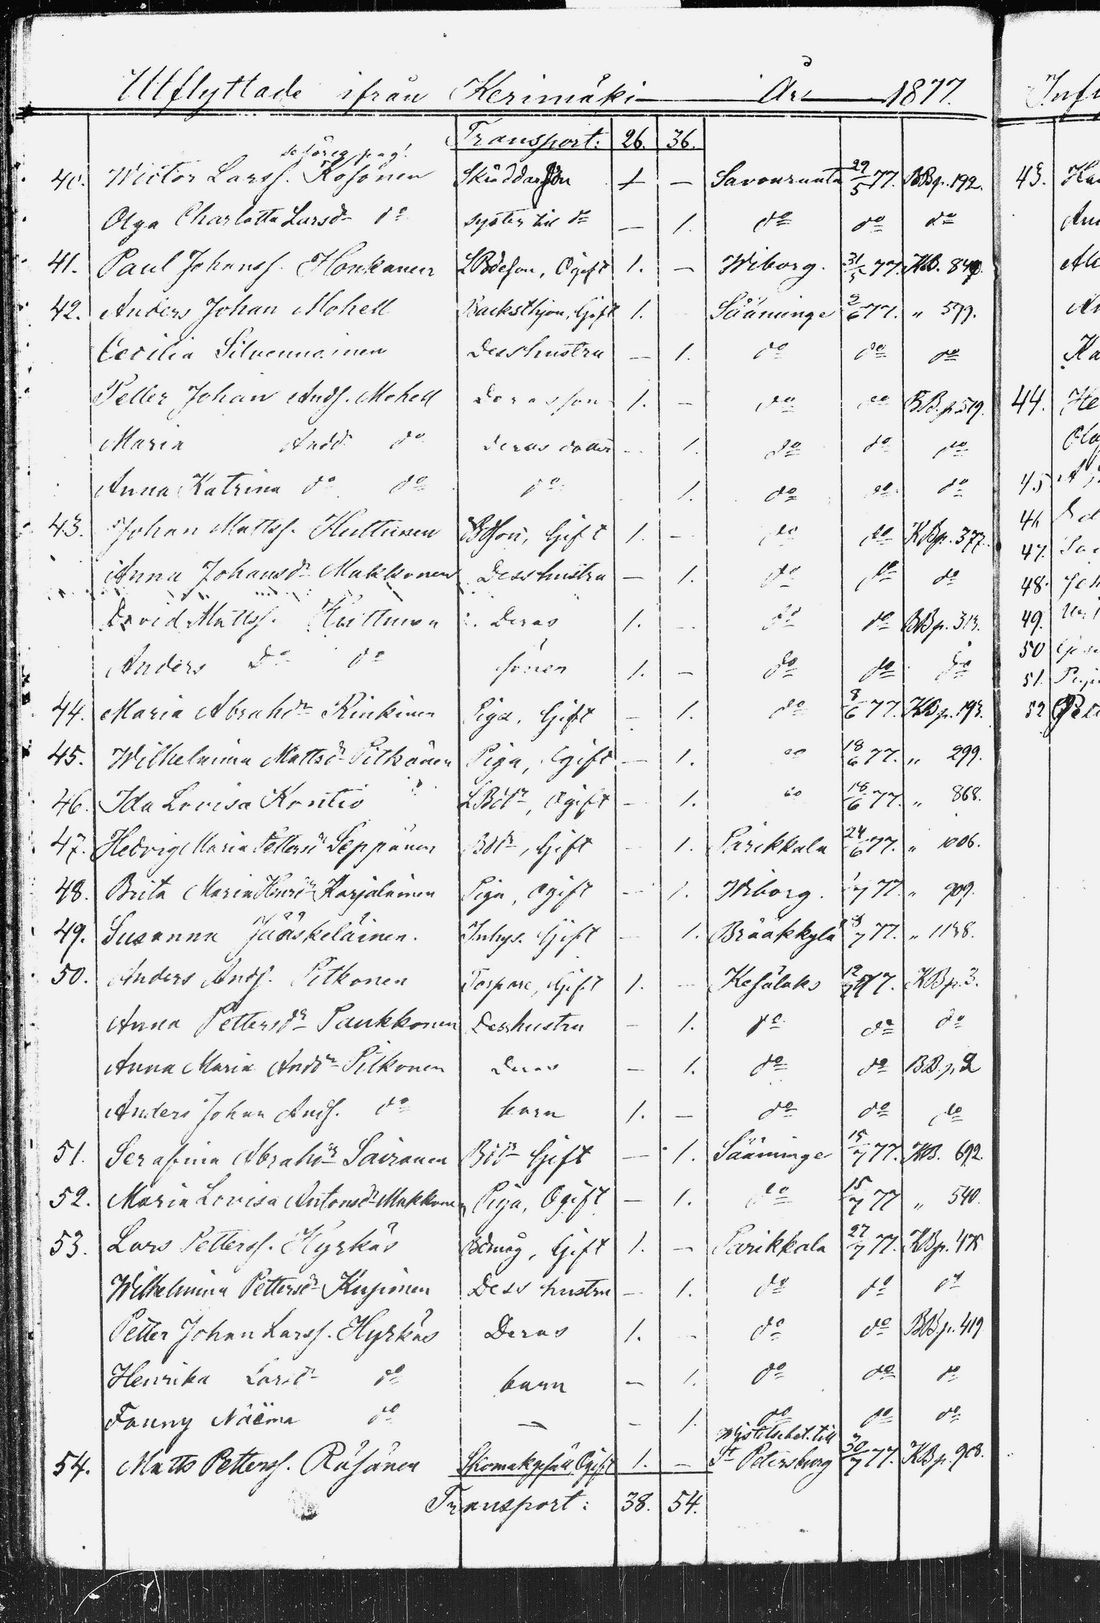 Utflyttade ifrån Kerimäki År 1877. Inf
Transport: 26. 36.
40. Wictor Larss. Kosonen Skräddarson 1 — Savonranta 29/5 77. BBp. 192.
Olga Charlotta Larsdr do syster till do — 1. do do do
41. Paul Johanss. Honkanen LBdeson, Ogift 1. — Wiborg. 31/5 77. KB. 849
42. Anders Johan Mohell Backsthjon, Gift 1. — Sääminge 3/6 77. " 577.
Cecilia Silvennoinen Desshustru — 1. do do do
Petter Johan Ands. Mohell Deras son 1. — do do BBp 519.
Maria Andd. do deras dotter — 1. do do do
Anna Katrina do do do 1. do do do
43. Johan Matss. Huttunen Bdson, Gift 1. — do do KBp. 377.
Anna Johansdr Makkonen Desshustru — 1. do do do
David Matss. Huttunen Deras 1. — do do BBp. 313.
Anders do do söner 1. — do do do
44. Maria Abrahdr Rinkinen Piga, Gift — 1. do 8/6 77. KBp. 193.
45. Wilhelmina Mattsdr Pitkänen Piga, Ogift — 1. do 18/6 77. " 299.
46. Ida Lovisa Kontio LBdtr, Ogift — 1. do 18/6 77. " 868.
47. Hedvig Maria Pettersdr Seppänen Bdtr, Gift — 1. Parikkala 24/6 77. " 1006.
48. Brita Maria Henrdr Karjalainen Piga, Ogift — 1. Wiborg. 1/7 77. " 909.
49. Susanna Jääskeläinen. Inhys. Gift — 1. Brääkkylä 8/7 77. " 1138.
50. Anders Ands. Pitkonen Torpare, Gift 1. — Kesälaks 12/7 77. KBp. 3.
Anna Pettersdr Paukkonen Desshustru — 1. do do do
Anna Maria Andsdr Pitkonen Deras — 1. do do BBp. 2
Anders Johan Ands. do barn 1. — do do do
51. Serafina Abrahdr Sairanen Bdtr Gift — 1. Sääminge 15/7 77. KB. 692
52. Maria Lovisa Antonsdr Makkonen Piga, Ogift — 1. do 15/7 77 " 540.
53. Lars Petterss. Hyrkäs Bdmåg, Gift 1. — Parikkala 27/7 77. KBp. 478
Wilhelmina Pettersdr Kupinen Dess hustru — 1. do do do
Petter Johan Larss. Hyrkäs Deras 1. — do do BBp. 419
Henrika Larsdr do barn — 1. do do do
Fanny Näema do — — 1. do do do
54. Matts Petterss. Räsänen Skomakgesäll Ogift 1. — St Petersburg 30/7 77. KBp. 908.
Transport: 38. 54.
43. Ha
44. He
45
46
47.
48.
49.
50
51.
52 Pet